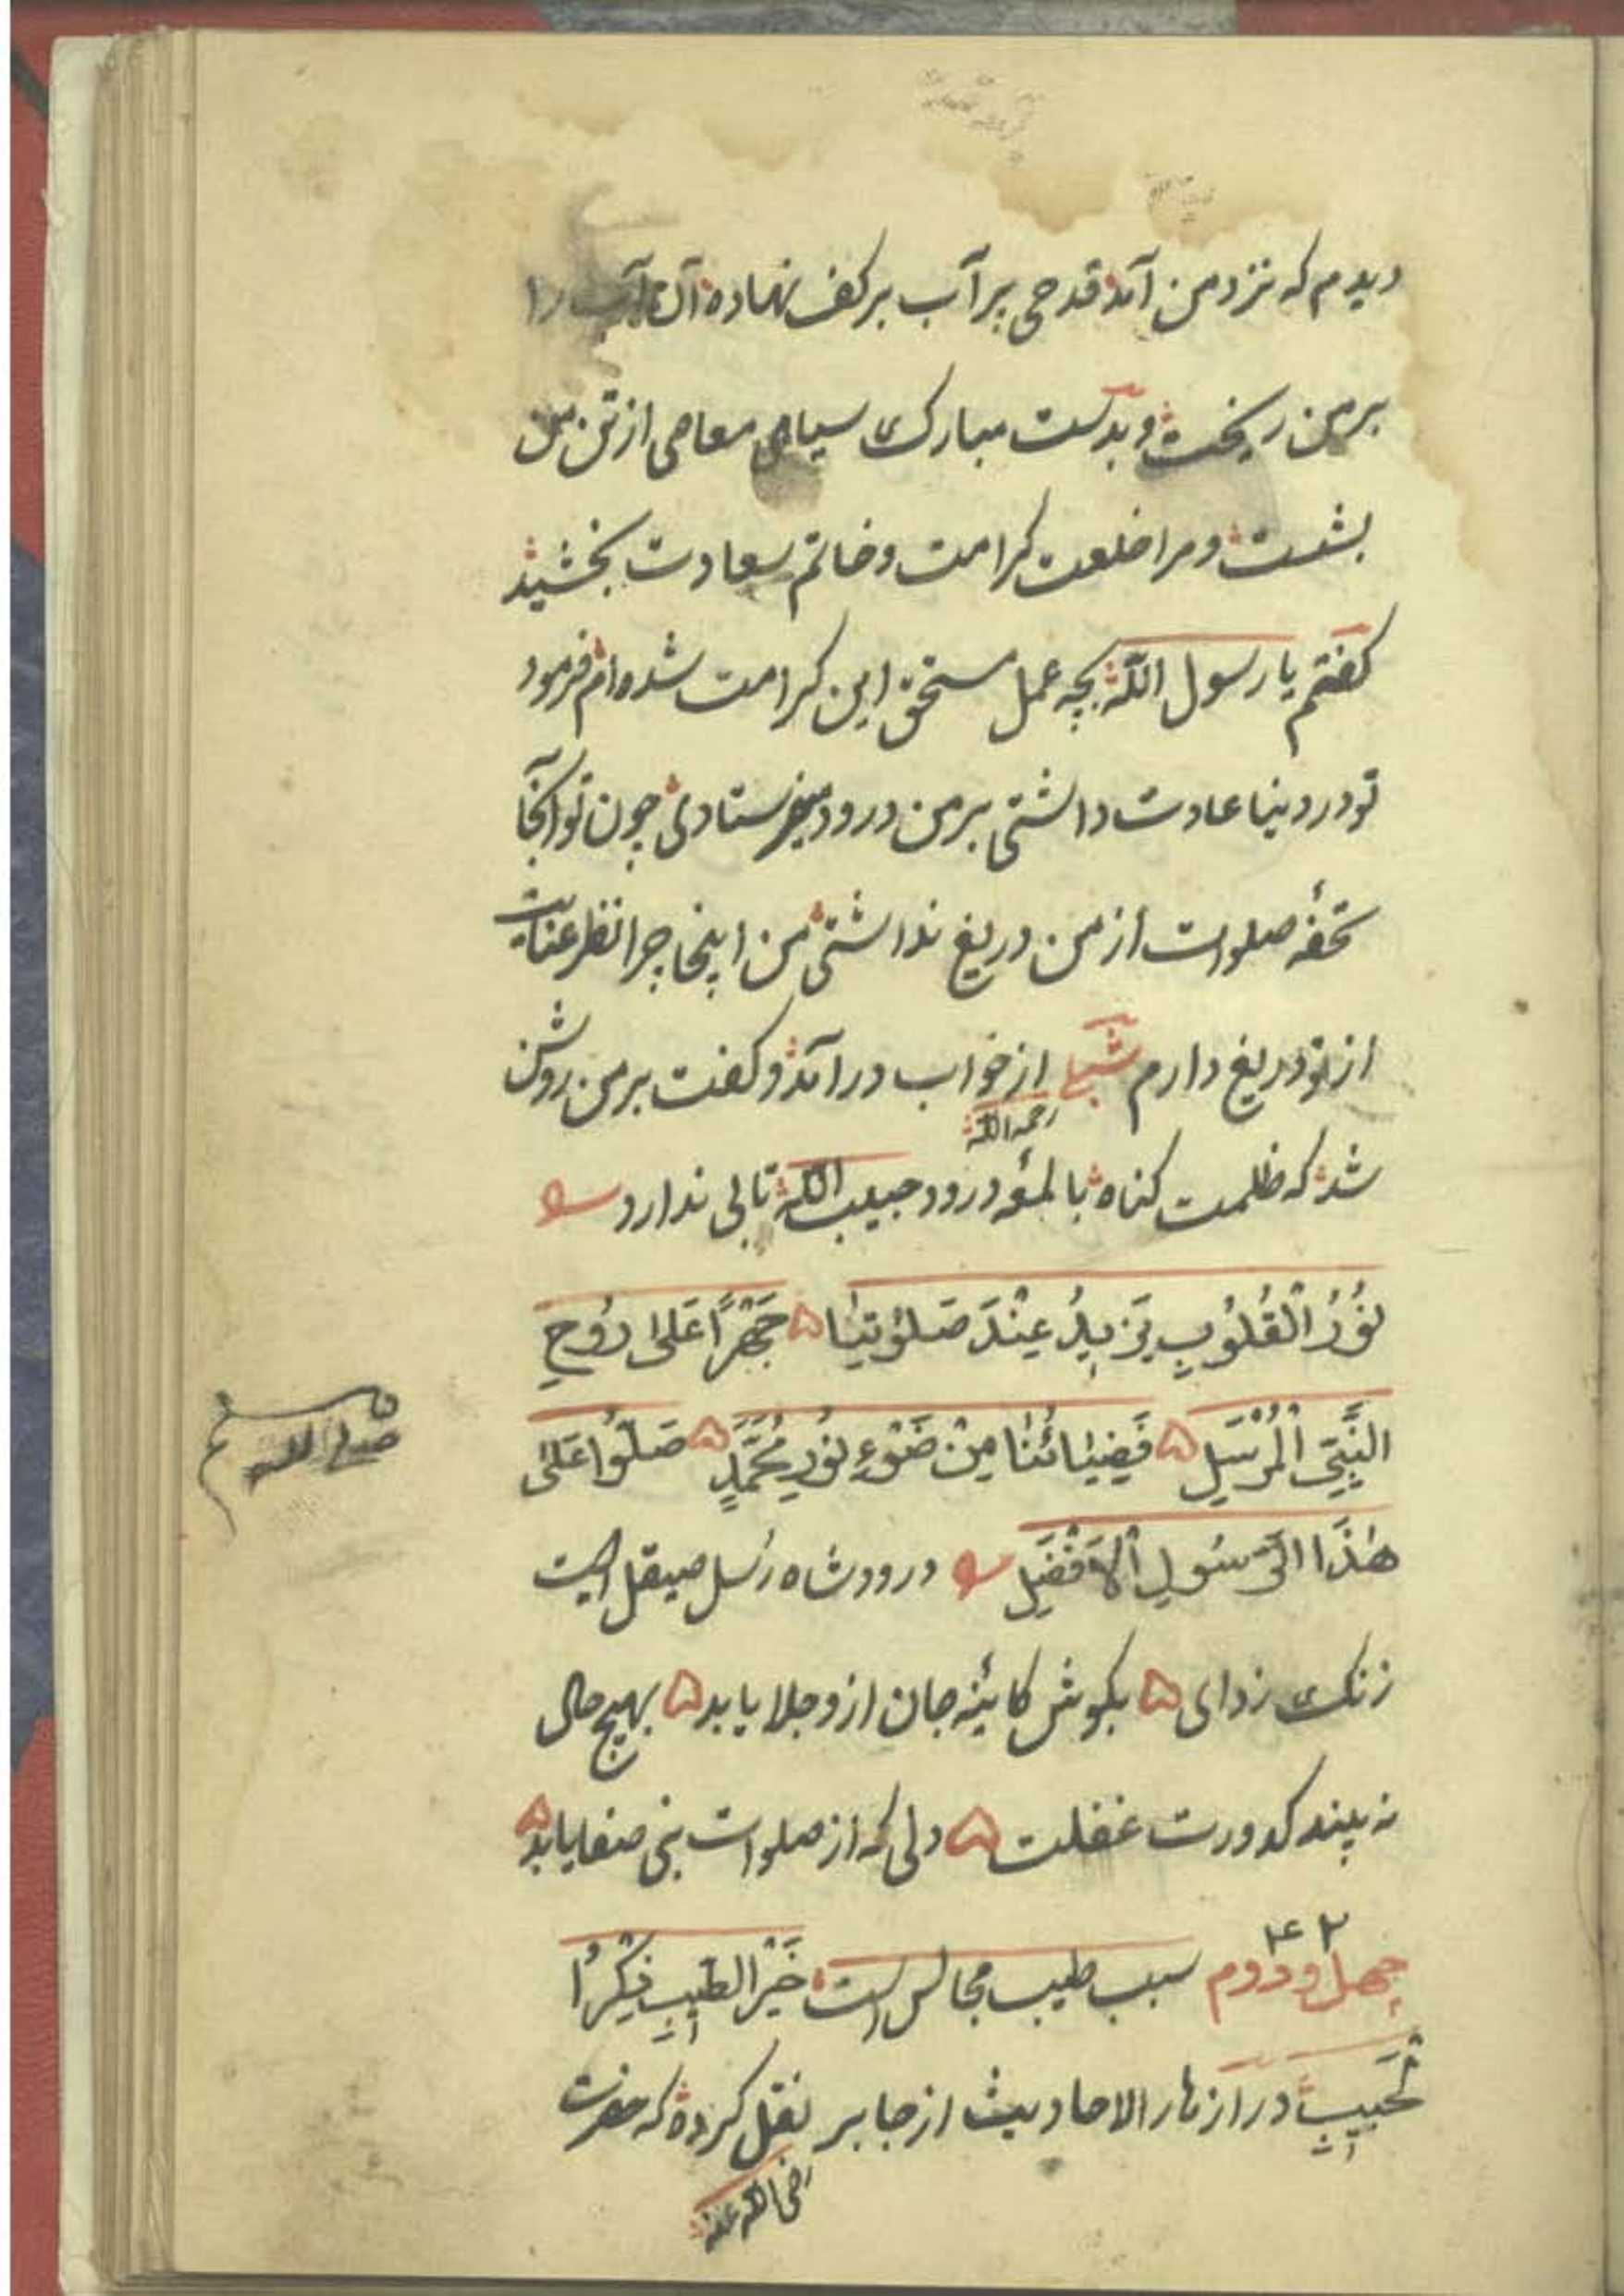 دیدم که نزد من آمد قدحی پر آب بر کف نهاده آن آب را
بر من ریخت و بدست مبارک سیاهی معاصی از تن من
بشست و مرا خلعت کرامت و خاتم سعادت بخشید
کفتم یا رسول الله بچه عمل مستحق این کرامت شده ام فرمود
تو در دنیا عادت داشتی بر من درود میفرستادی چون تو آنجا
تحفهٔ صلوات از من دریغ نداشتی من اینجا چرا نظر عنایت
از تو دریغ دارم شبلی از خواب درآمد و کفت بر من روشن
رحمه الله
شد که ظلمت کناه با لمعهٔ درود حبیب الله تابی ندارد
نُوْرُ الْقُلُوْبِ یَزِیْدُ عِنْدَ صَلٰوتِنَا ۵ جَهْرًا عَلٰی رُوْحِ
النَّبِيِّ الْمُرْسَلِ ۵ فَضِیَائُنَا مِنْ ضَوْءِ نُوْرِ مُحَمَّدٍ ۵ صَلُّوْا عَلٰی
صلی الله علیه و سلم
هٰذَا الرَّسُوْلِ الْاَفْضَلِ درود شاه رُسل صیقل است
زنک زدای ۵ بکوش کائینه جان ازو جلا یابد ۵ بهیچ حال
نه بیند کدورت غفلت ۵ دلی که از صلوات نبی صفا یابد ۵
۴۲
چهل و دوم سبب طیب مجالس است خَیْرُ الطِّیْبِ ذِکْرُ
الْحَبِیْبِ در ازهار الاحادیث از جابر نقل کرده که حضرت
رضی الله عنه